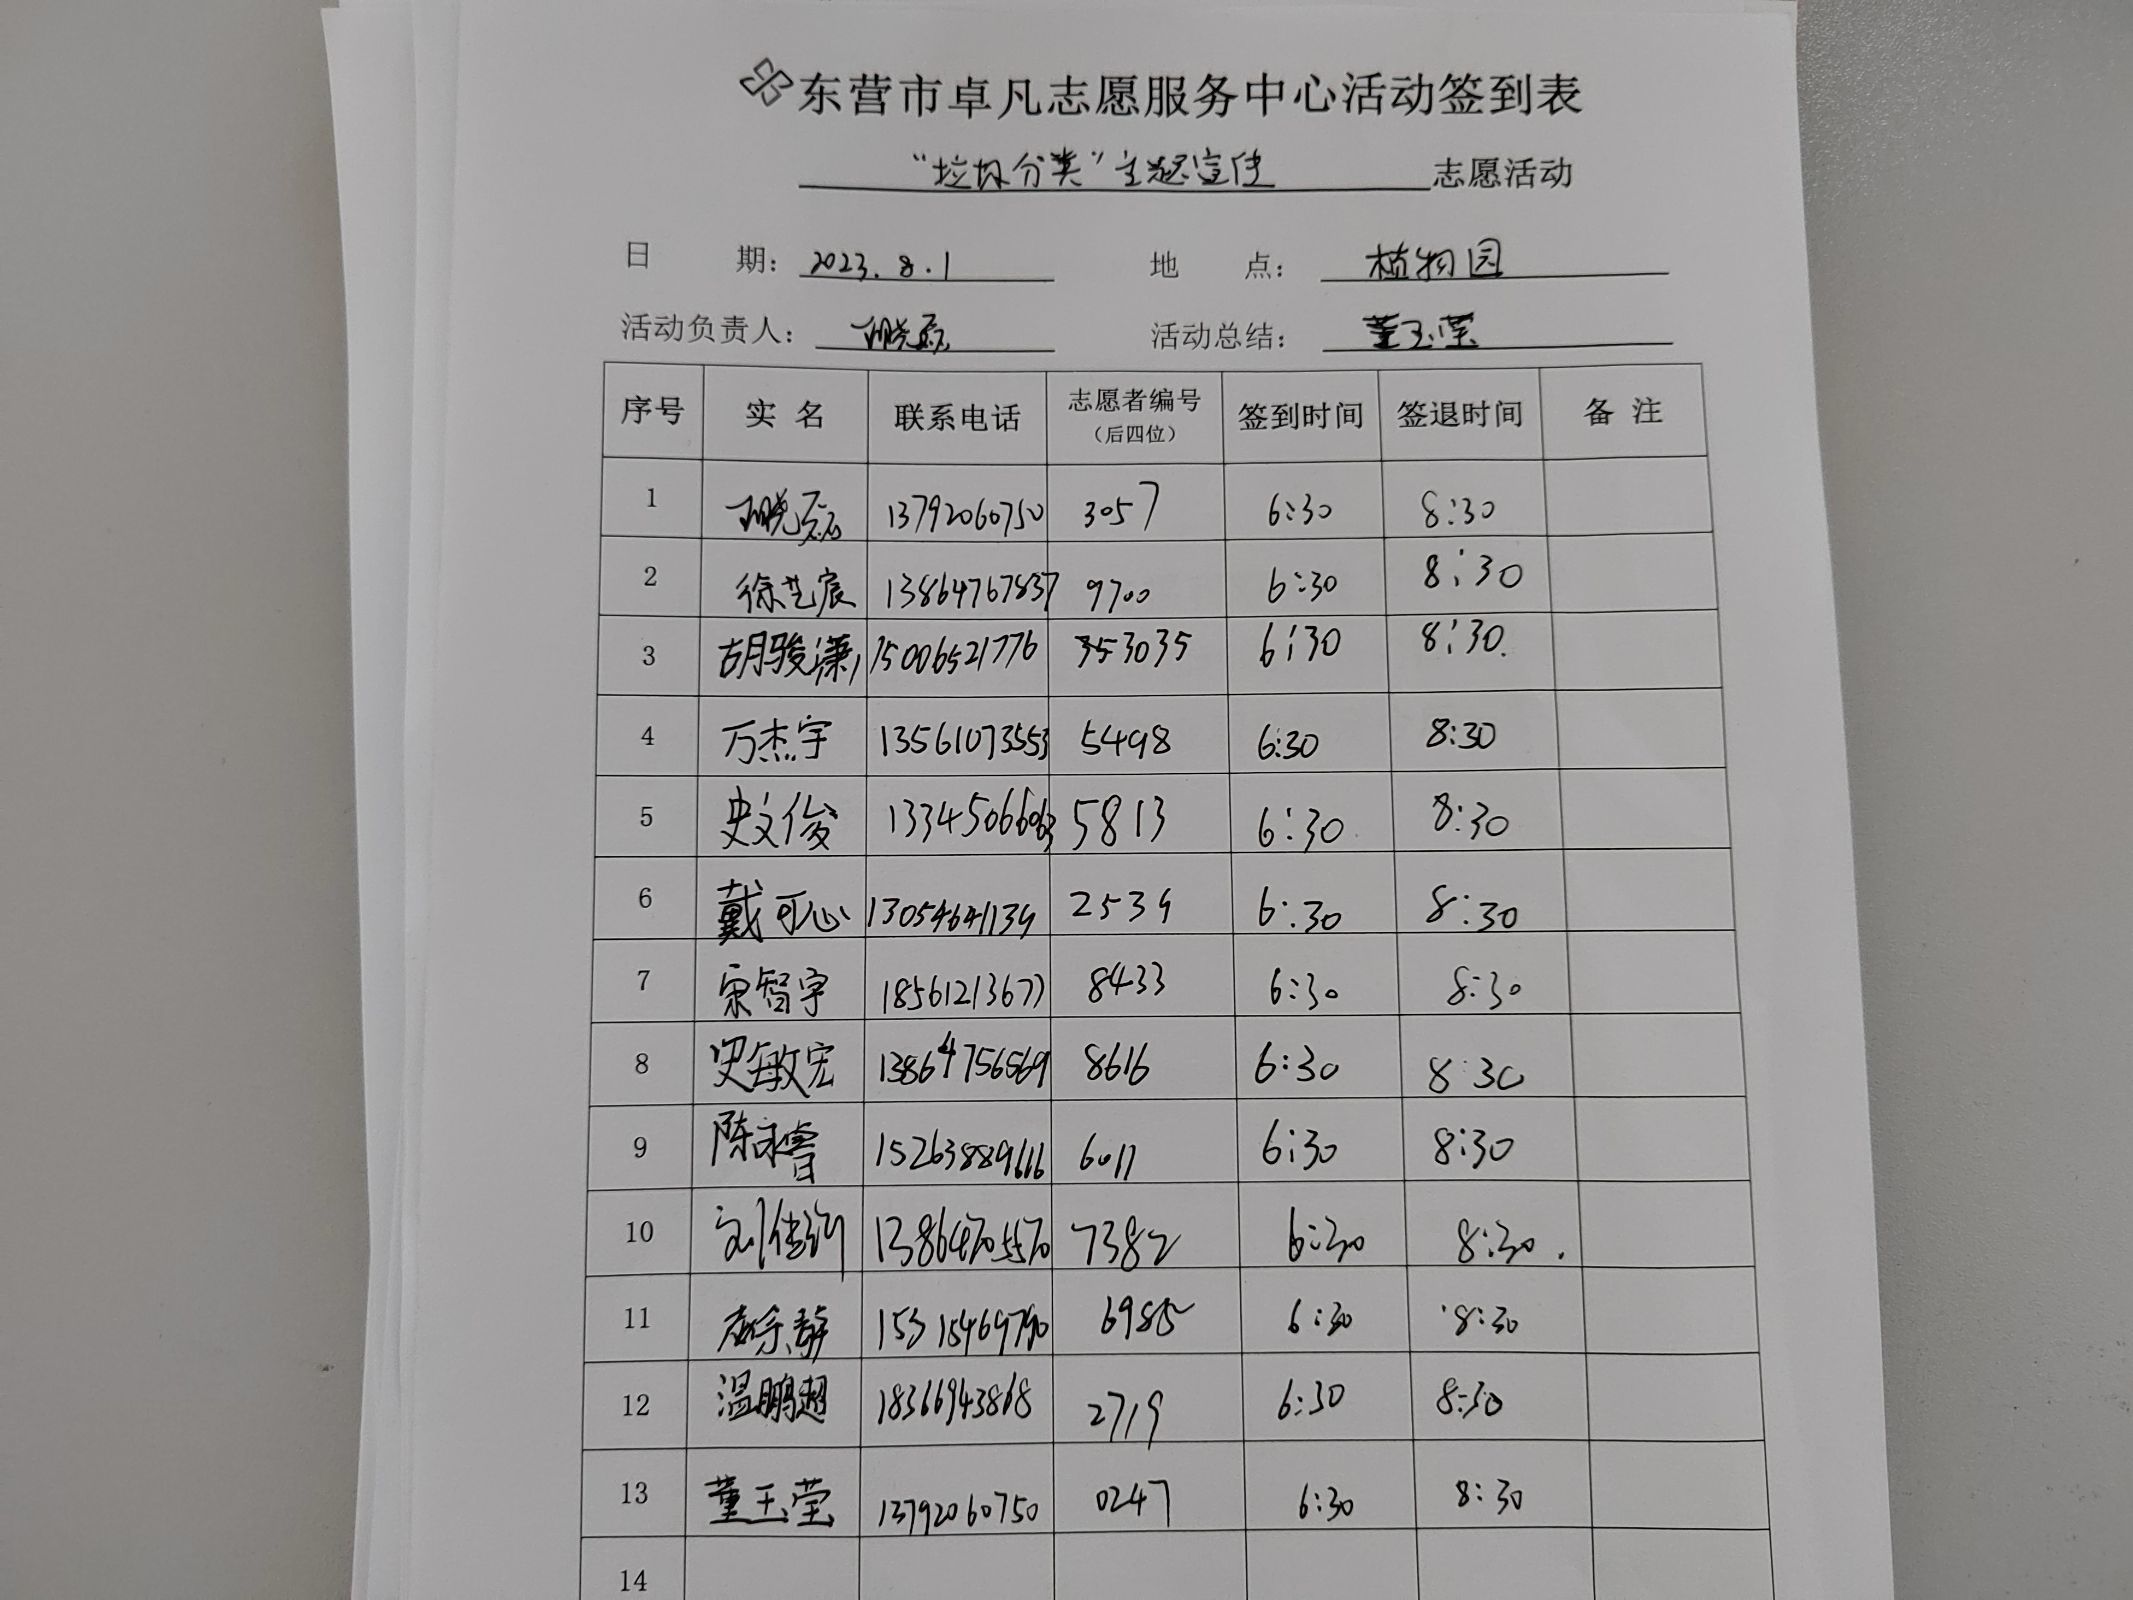 东营市卓凡志愿服务中心活动签到表
“垃圾分类”主题宣传 志愿活动
日 期: 2023.8.1 地 点: 植物园
活动负责人: 活动总结: 董玉莹
序号 实 名 联系电话 志愿者编号(后四位) 签到时间 签退时间 备 注
1 13792060750 3057 6:30 8:30
2 徐艺宸 13864767837 9700 6:30 8:30
3 胡骏潇 15006521776 353035 6:30 8:30
4 万杰宇 13561073553 5498 6:30 8:30
5 史文俊 13345066063 5813 6:30 8:30
6 戴可心 13054641139 2539 6:30 8:30
7 宋智宇 18561213677 8433 6:30 8:30
8 史敏宏 13864756569 8616 6:30 8:30
9 陈永睿 15263889616 6011 6:30 8:30
10 13864705570 7382 6:30 8:30
11 15315469790 6985 6:30 8:30
12 温鹏超 18366943868 2719 6:30 8:30
13 董玉莹 13792060750 0247 6:30 8:30
14